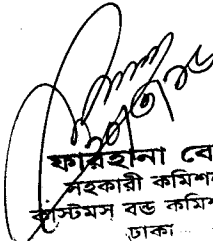 ফারহানা বে
সহকারী কমিশ
কাস্টমস বন্ড কমিশ
ঢাকা